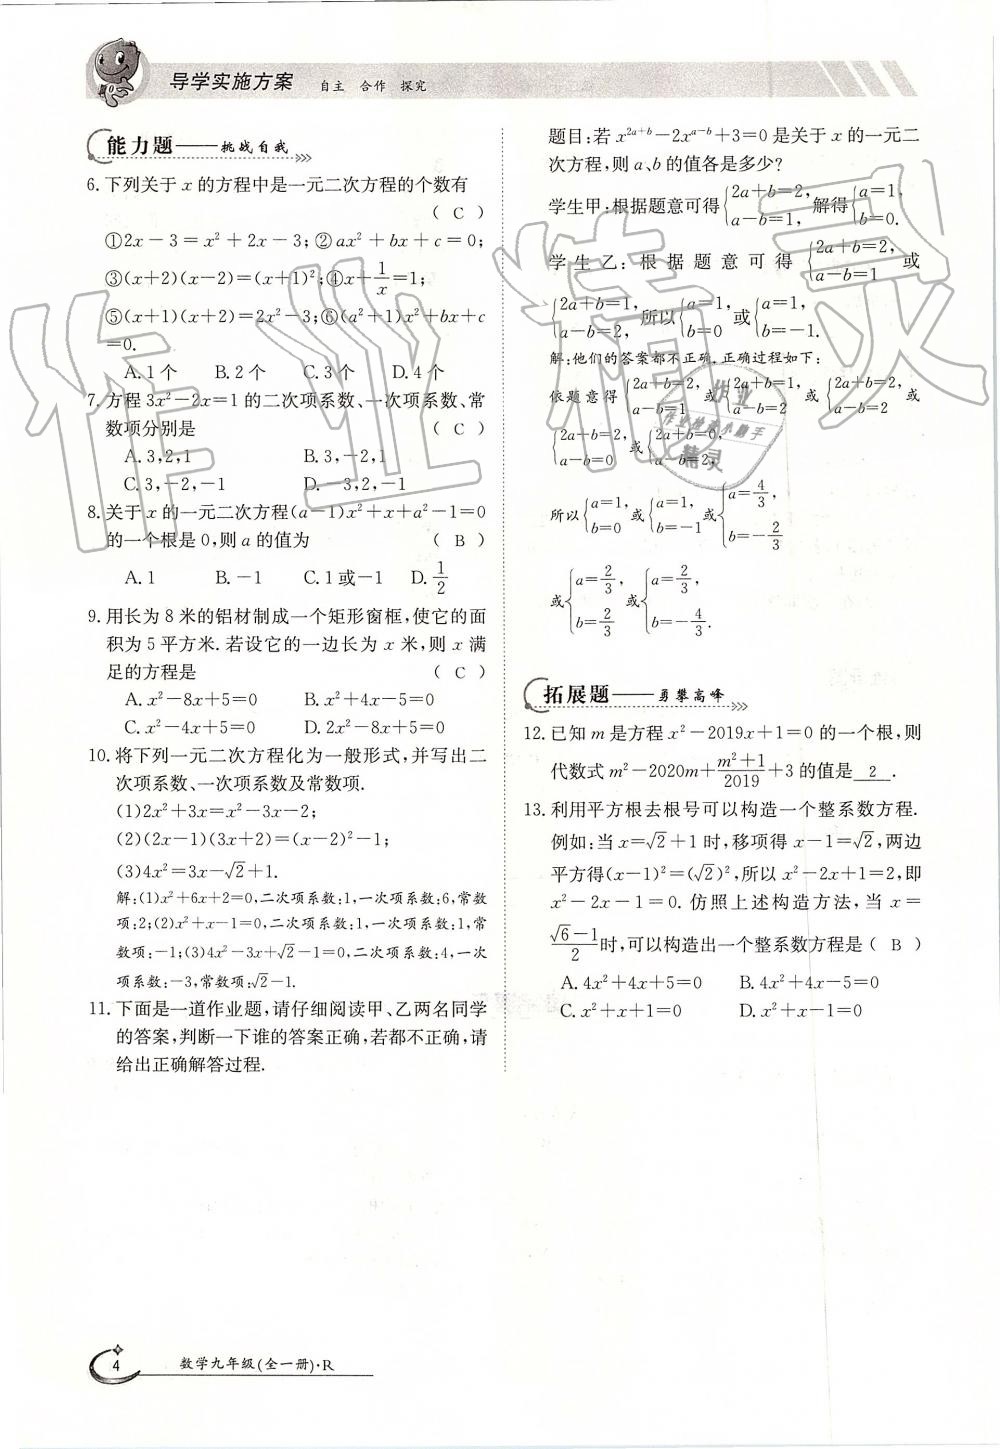 导学实施方案 自主 合作 探究
能力题——挑战自我
6.下列关于 x 的方程中是一元二次方程的个数有
( C )
①2x－3＝x²＋2x－3;②ax²＋bx＋c＝0;
③(x+2)(x－2)＝(x+1)²;④x+1/x＝1;
⑤(x+1)(x+2)＝2x²－3;⑥(a²+1)x²+bx+c
＝0.
A.1个 B.2个 C.3个 D.4个
7.方程3x²－2x＝1的二次项系数、一次项系数、常
数项分别是 ( C )
A.3,2,1 B.3,－2,1
C.3,－2,－1 D.－3,2,－1
8.关于 x 的一元二次方程(a－1)x²＋x＋a²－1＝0
的一个根是0,则 a 的值为 ( B )
A.1 B.－1 C.1或－1 D.1/2
9.用长为8米的铝材制成一个矩形窗框,使它的面
积为5平方米.若设它的一边长为 x 米,则 x 满
足的方程是 ( C )
A.x²－8x+5＝0 B.x²+4x－5＝0
C.x²－4x+5＝0 D.2x²－8x+5＝0
10.将下列一元二次方程化为一般形式,并写出二
次项系数、一次项系数及常数项.
(1)2x²+3x＝x²－3x－2;
(2)(2x－1)(3x+2)＝(x－2)²－1;
(3)4x²＝3x－√2+1.
解:(1)x²+6x+2＝0,二次项系数:1,一次项系数:6,常数
项:2;(2)x²＋x－1＝0,二次项系数:1,一次项系数:1,常
数项:－1;(3)4x²－3x+√2－1＝0,二次项系数:4,一次
项系数:－3,常数项:√2－1.
11.下面是一道作业题,请仔细阅读甲、乙两名同学
的答案,判断一下谁的答案正确,若都不正确,请
给出正确解答过程.
题目:若 x^{2a+b}－2x^{a－b}+3＝0 是关于 x 的一元二
次方程,则 a、b 的值各是多少?
学生甲:根据题意可得{2a+b＝2, a－b＝1, 解得{a＝1, b＝0.
学生乙:根据题意可得{2a+b＝2, a－b＝1 或
{2a+b＝1, a－b＝2, 所以{a＝1, b＝0 或{a＝1, b＝－1.
解:他们的答案都不正确.正确过程如下:
依题意得{2a+b＝2, a－b＝1 或{2a+b＝1, a－b＝2 或{2a+b＝2, a－b＝2 或
{2a－b＝2, a－b＝0 或{2a+b＝0, a－b＝2,
所以{a＝1, b＝0 或{a＝1, b＝－1 或{a＝4/3, b＝－2/3
或{a＝2/3, b＝2/3 或{a＝2/3, b＝－4/3.
拓展题——勇攀高峰
12.已知 m 是方程 x²－2019x+1＝0 的一个根,则
代数式 m²－2020m+(m²+1)/2019+3 的值是 2 .
13.利用平方根去根号可以构造一个整系数方程.
例如:当 x＝√2+1时,移项得 x－1＝√2,两边
平方得(x－1)²＝(√2)²,所以 x²－2x+1＝2,即
x²－2x－1＝0. 仿照上述构造方法,当 x＝
(√6－1)/2时,可以构造出一个整系数方程是( B )
A.4x²+4x+5＝0 B.4x²+4x－5＝0
C.x²+x+1＝0 D.x²+x－1＝0
作业精灵
作业
作业检查小助手
精灵
4 数学九年级(全一册)·R